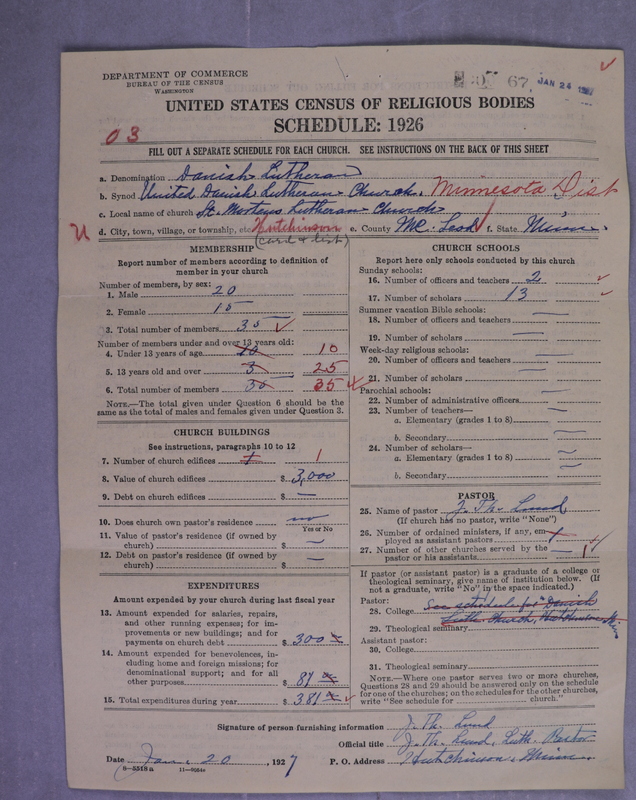 DEPARTMENT OF COMMERCE
BUREAU OF THE CENSUS
WASHINGTON
67
JAN 24
UNITED STATES CENSUS OF RELIGIOUS BODIES
SCHEDULE: 1926
03
FILL OUT A SEPARATE SCHEDULE FOR EACH CHURCH. SEE INSTRUCTIONS ON THE BACK OF THIS SHEET
a. Denomination Danish Lutheran
b. Synod United Danish Lutheran Church. Minnesota Dist
c. Local name of church St. Mortens Lutheran Church
d. City, town, village, or township, etc. Hutchinson e. County Mc. Leod f. State Minn.
(card & list)
MEMBERSHIP
Report number of members according to definition of
member in your church
Number of members, by sex:
1. Male 20
2. Female 15
3. Total number of members 35
Number of members under and over 13 years old:
4. Under 13 years of age 10 10
5. 13 years old and over 25
6. Total number of members 35 35
NOTE.—The total given under Question 6 should be the
same as the total of males and females given under Question 3.
CHURCH BUILDINGS
See instructions, paragraphs 10 to 12
7. Number of church edifices 1 1
8. Value of church edifices $ 3,000
9. Debt on church edifices $ —
10. Does church own pastor's residence no
Yes or No
11. Value of pastor's residence (if owned by
church) $ —
12. Debt on pastor's residence (if owned by
church) $ —
EXPENDITURES
Amount expended by your church during last fiscal year
13. Amount expended for salaries, repairs,
and other running expenses; for im-
provements or new buildings; and for
payments on church debt $ 300
14. Amount expended for benevolences, in-
cluding home and foreign missions; for
denominational support; and for all
other purposes $ 81
15. Total expenditures during year $ 381
CHURCH SCHOOLS
Report here only schools conducted by this church
Sunday schools:
16. Number of officers and teachers 2
17. Number of scholars 13
Summer vacation Bible schools:
18. Number of officers and teachers —
19. Number of scholars —
Week-day religious schools:
20. Number of officers and teachers —
21. Number of scholars —
Parochial schools:
22. Number of administrative officers —
23. Number of teachers—
a. Elementary (grades 1 to 8) —
b. Secondary —
24. Number of scholars—
a. Elementary (grades 1 to 8) —
b. Secondary —
PASTOR
25. Name of pastor J. Th. Lund
(If church has no pastor, write "None")
26. Number of ordained ministers, if any, em-
ployed as assistant pastors
27. Number of other churches served by the
pastor or his assistants
If pastor (or assistant pastor) is a graduate of a college or
theological seminary, give name of institution below. (If
not a graduate, write "No" in the space indicated.)
Pastor:
28. College See schedule for "Danish
29. Theological seminary Luth. Church, Hutchinson
Assistant pastor:
30. College
31. Theological seminary
NOTE.—Where one pastor serves two or more churches,
Questions 28 and 29 should be answered only on the schedule
for one of the churches; on the schedules for the other churches,
write "See schedule for church."
Signature of person furnishing information J. Th. Lund
Official title J. Th. Lund, Luth. Pastor
Date Jan. 20, 1927 P. O. Address Hutchinson, Minn.
8—5518a